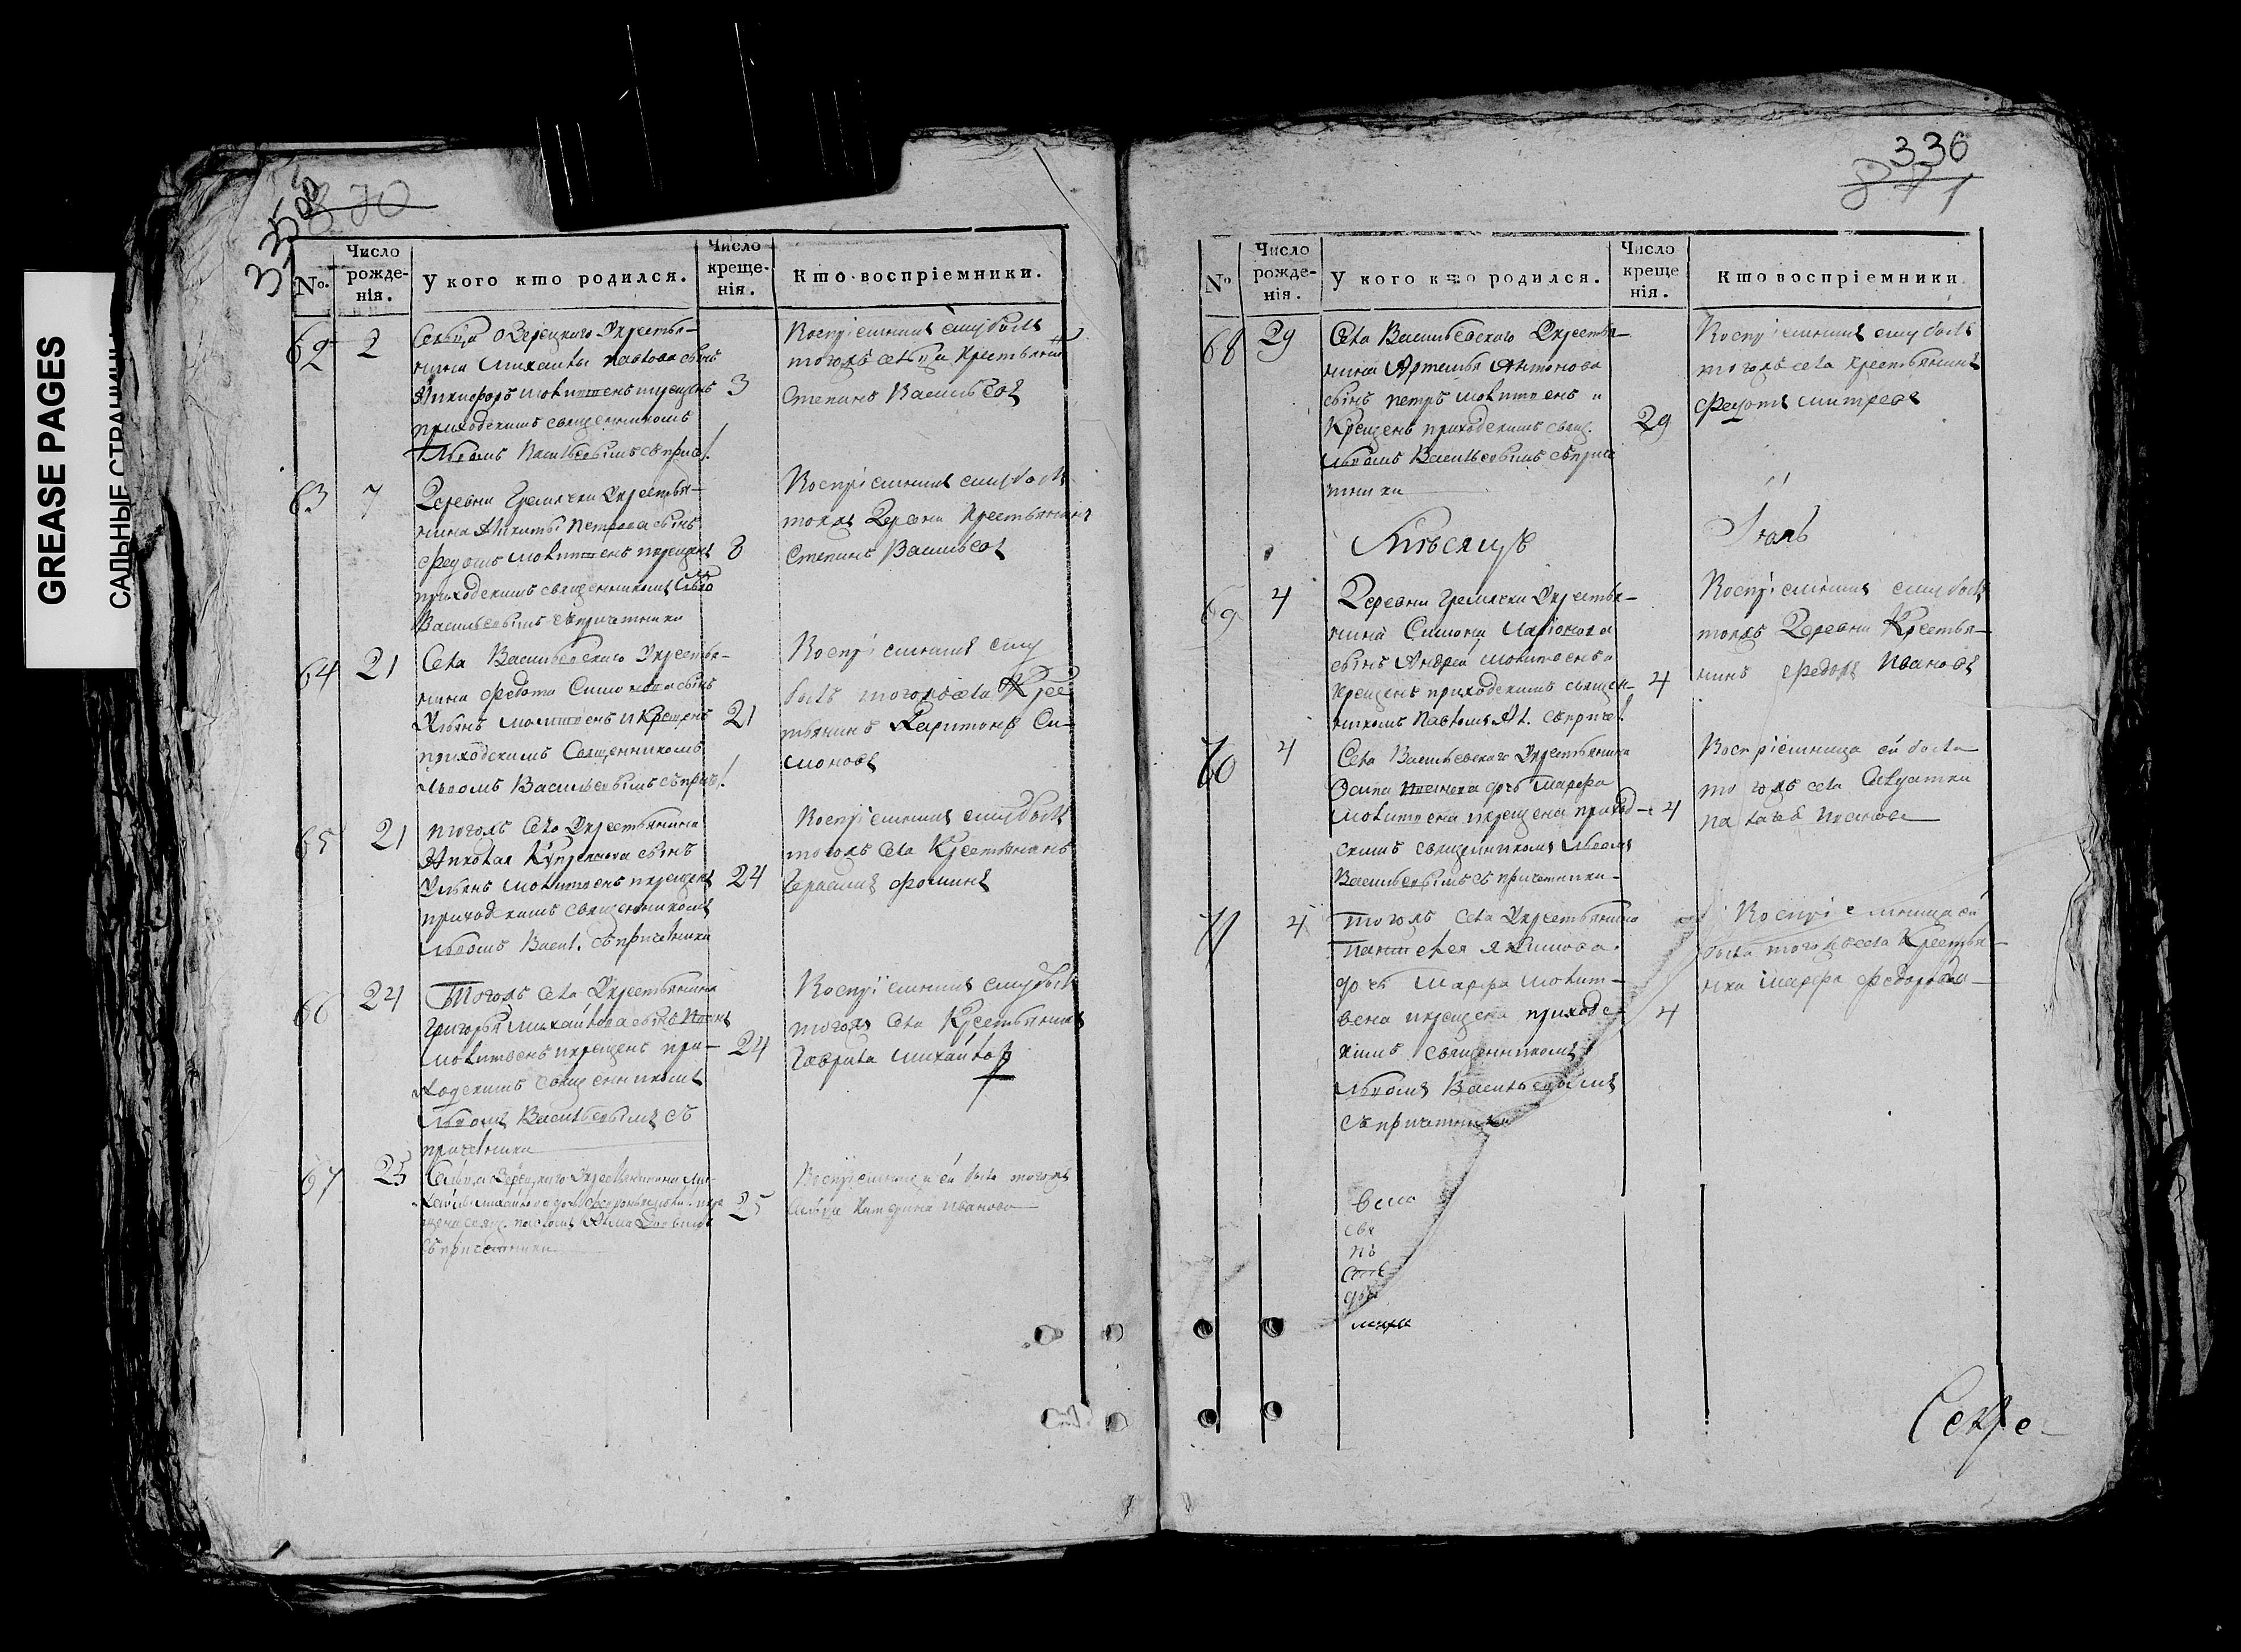 GREASE PAGES
САЛЬНЫЕ СТРАНИЦЫ
335 об
870
№. Число рожденія. У кого кто родился. Число крещенія. Кто воспріемники.
62 2 3
Сельца Озерецкого крестья-
нина Михаилы Павлова сынъ
Никифоръ молитвенъ крещенъ
приходскимъ священникомъ
Львомъ Васильевымъ съ прич.
Воспріемникъ ему былъ
тогожъ сельца крестьянинъ
Степанъ Васильевъ
63 7 8
Деревни Гремячки крестья-
нина Никиты Петрова сынъ
Федотъ молитвенъ крещенъ
приходскимъ священникомъ Льво
Васильевымъ съ причетники
Воспріемникъ ему былъ
тояжъ деревни крестьянинъ
Степанъ Васильевъ
64 21 21
Села Васильевского крестья-
нина Федота Симонова сынъ
Ульянъ молитвенъ и крещенъ
приходскимъ священникомъ
Львомъ Васильевымъ съ прич.
Воспріемникъ ему
былъ тогожъ села крес
тьянинъ Харитонъ Си-
моновъ
65 21 24
тогожъ села крестьянина
Николая Купреянова сынъ
Ульянъ молитвенъ крещенъ
приходскимъ священникомъ
Львомъ Васил. съ причетники
Воспріемникъ ему былъ
тогожъ села крестьянинъ
Герасимъ Фоминъ
66 24 24
Тогожъ села крестьянина
Григорья Михайлова сынъ
молитвенъ крещенъ при-
ходскимъ священникомъ
Львомъ Васильевымъ съ
причетники
Воспріемникъ ему былъ
тогожъ села крестьянинъ
Гаврила Михайловъ
67 25 25
Сельца Озерецкого крестьянина Ми-
Михайлова дочь
щена свящ. Павломъ
съ причетники
Воспріемница ей была тогожъ
сельца Катерина Иванова
336
871
№ Число рожденія. У кого кто родился. Число крещенія. Кто воспріемники
68 29 29
Села Васильевского крестья-
нина Артемья Антонова
сынъ Петръ молитвенъ и
крещенъ приходскимъ свящ.
Львомъ Васильевымъ съ приче
тники
Воспріемникъ ему былъ
тогожъ села крестьянинъ
Федотъ Митревъ
Мѣсяцъ Іюль
69 4 4
Деревни Гремячки крестья-
нина Симона Ларіонова
сынъ Андрей молитвенъ и
крещенъ приходскимъ священ-
никомъ Павломъ Ал. съ причет.
Воспріемникъ ему былъ
тояжъ деревни крестья-
нинъ Федоръ Ивановъ
70 4 4
Села Васильевского крестьянина
Осипа дочь Марфа
молитвена крещена приход-
скимъ священникомъ Львомъ
Васильевымъ съ причетники
Воспріемница ей была
тогожъ села
71 4 4
Тогожъ села крестьянина
Пантелея Якимова
дочь Марфа молит-
вена крещена приходс
кимъ священникомъ
Львомъ Васильевымъ
съ причетники
Воспріемница ей
была тогожъ села крестья-
нка Марфа Федорова
Секре-